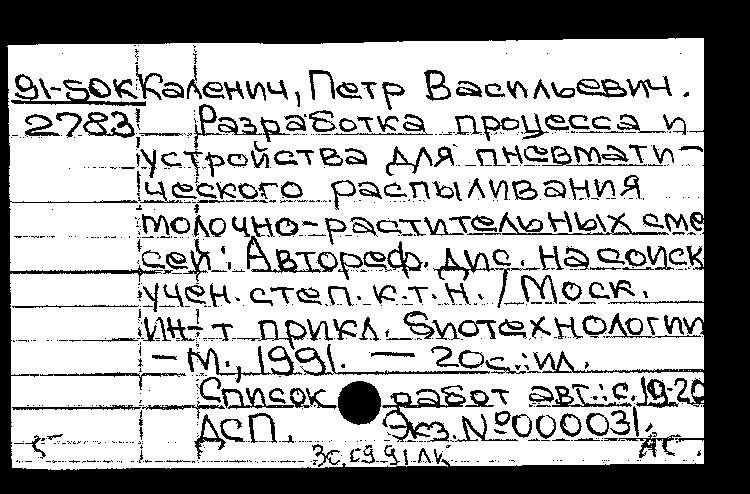 91-50К Каленич, Петр Васильевич.
2783 Разработка процесса и
устройства для пневмати-
ческого распыливания
молочно-растительных сме
сей: Автореф. дис. на соиск
учен. степ. к.т.н. / Моск.
ин-т прикл. биотехнологии
— М., 1991. — 20с.:ил.
Список работ авт.: с.19-20
ДСП. Экз. №000031.
АС.